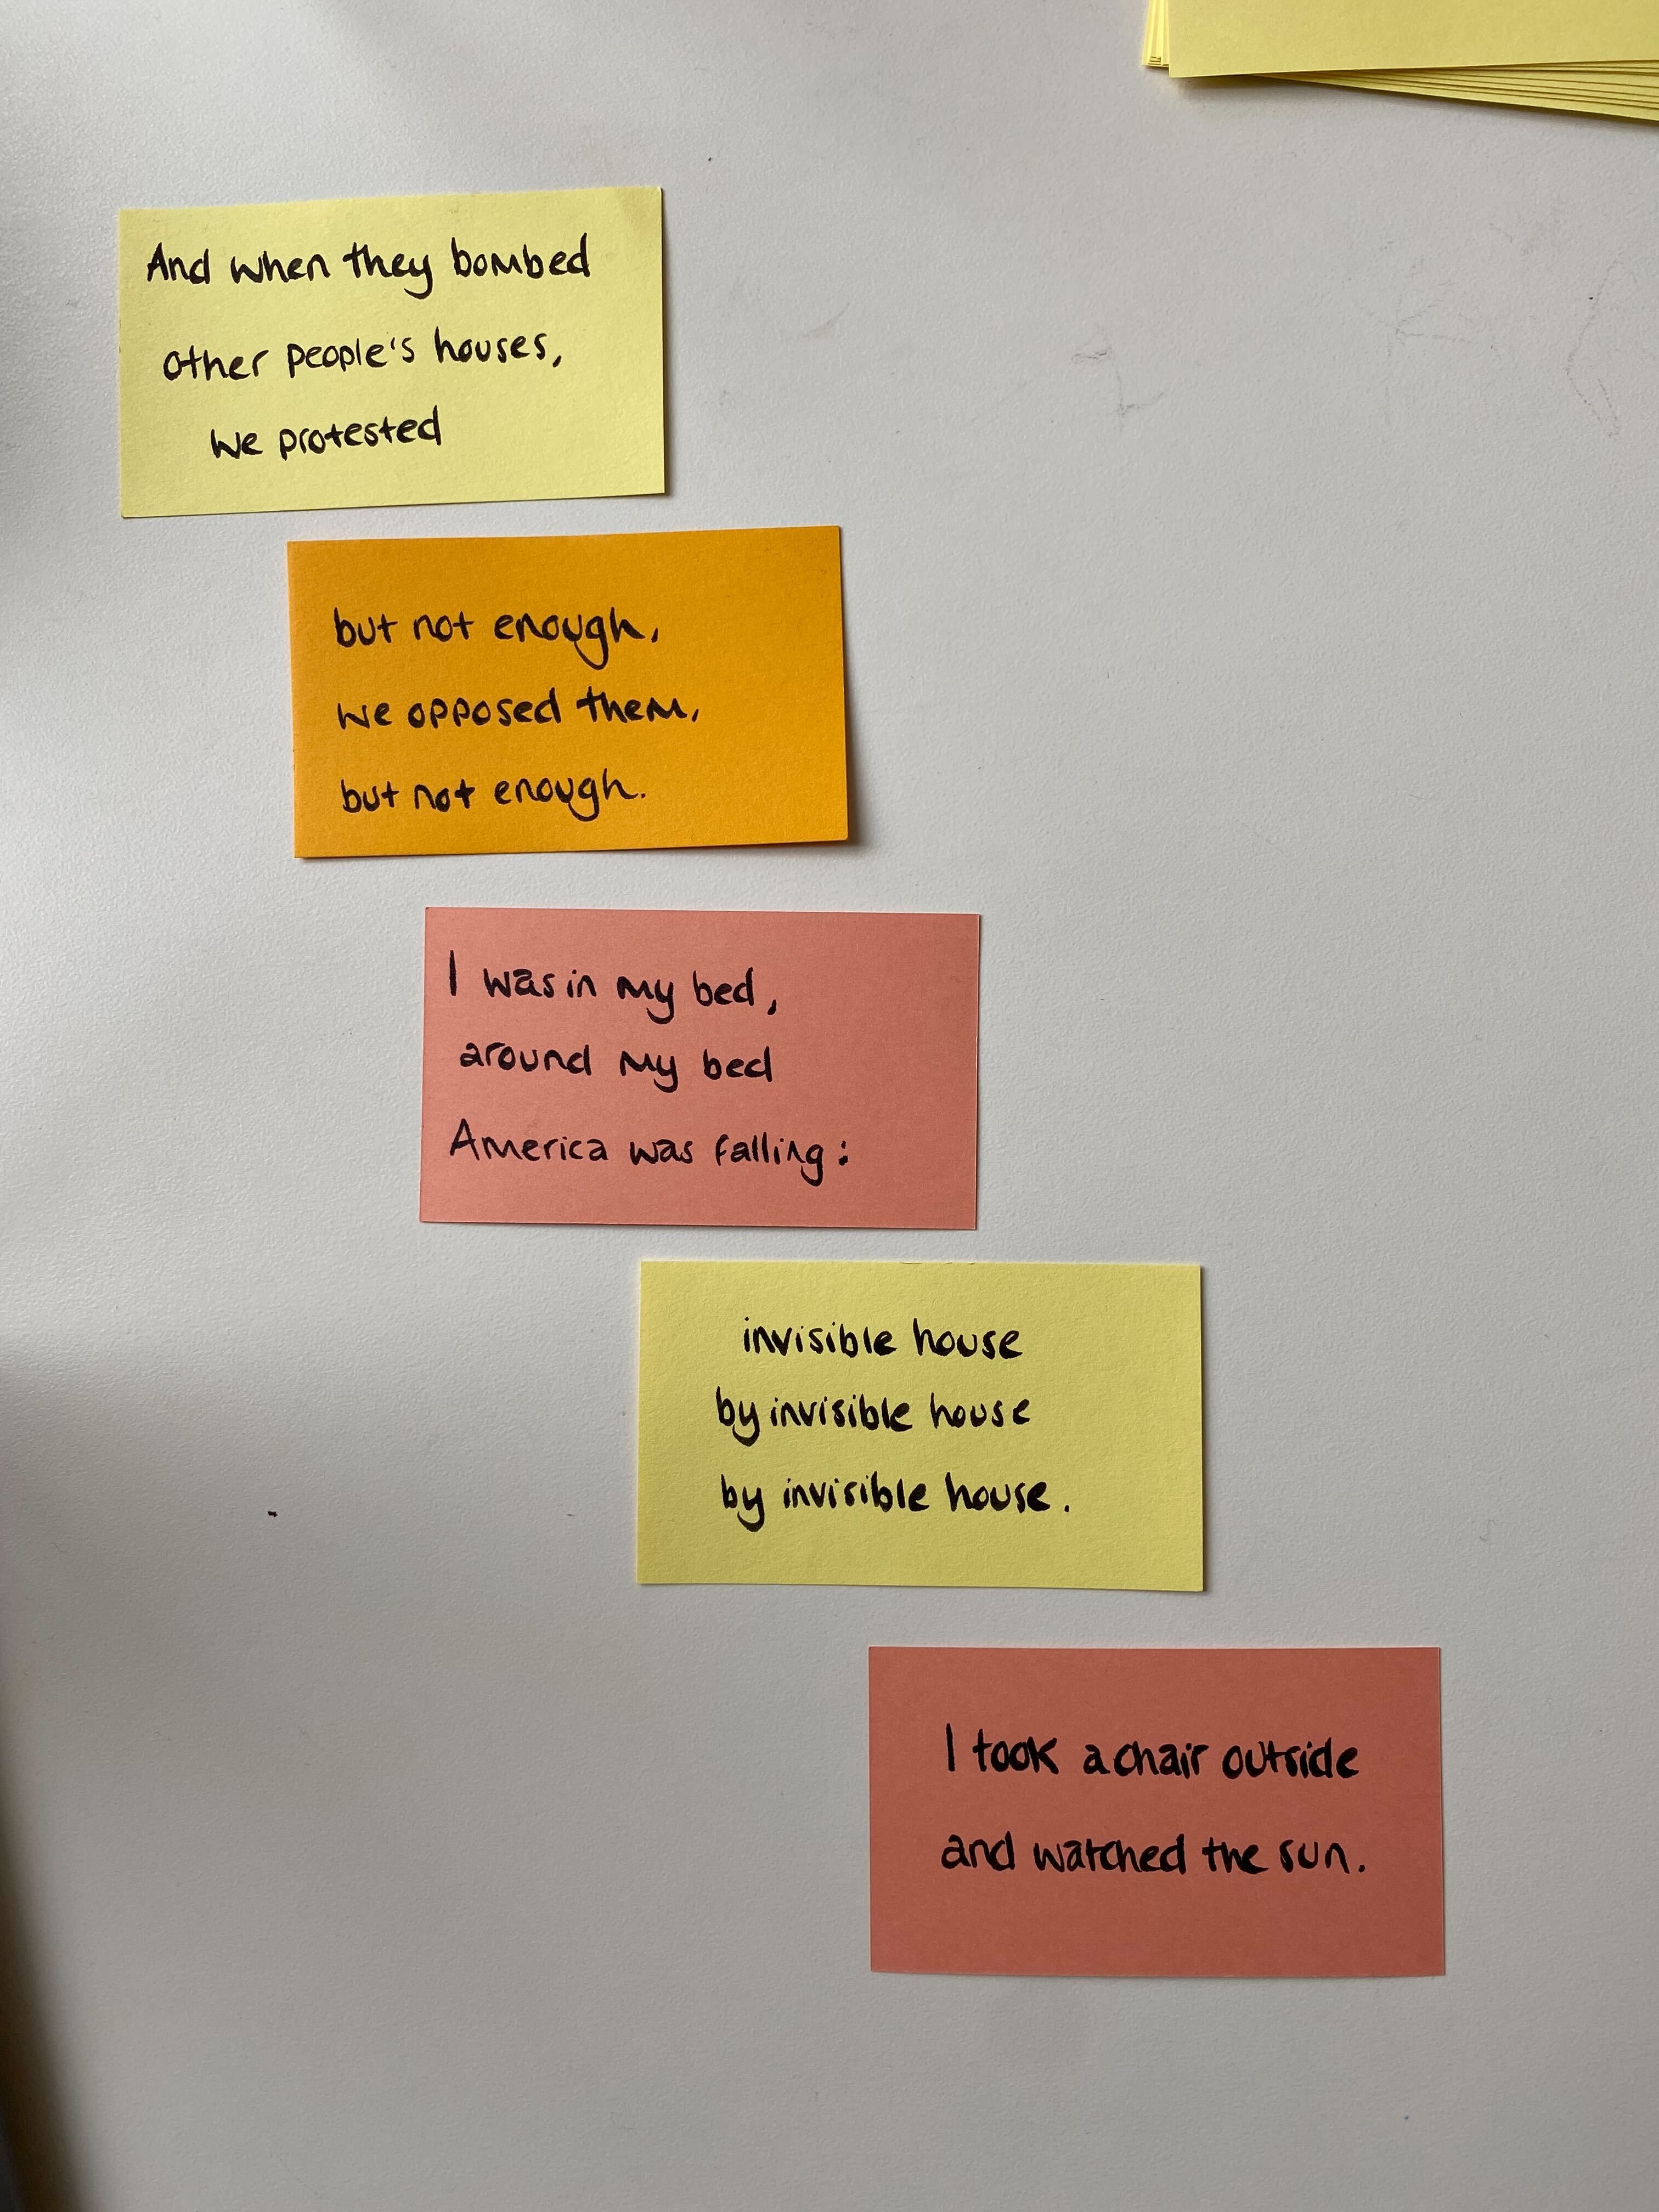 And when they bombed
other people's houses,
we protested
but not enough,
we opposed them,
but not enough.
I was in my bed,
around my bed
America was falling:
invisible house
by invisible house
by invisible house.
I took a chair outside
and watched the sun.